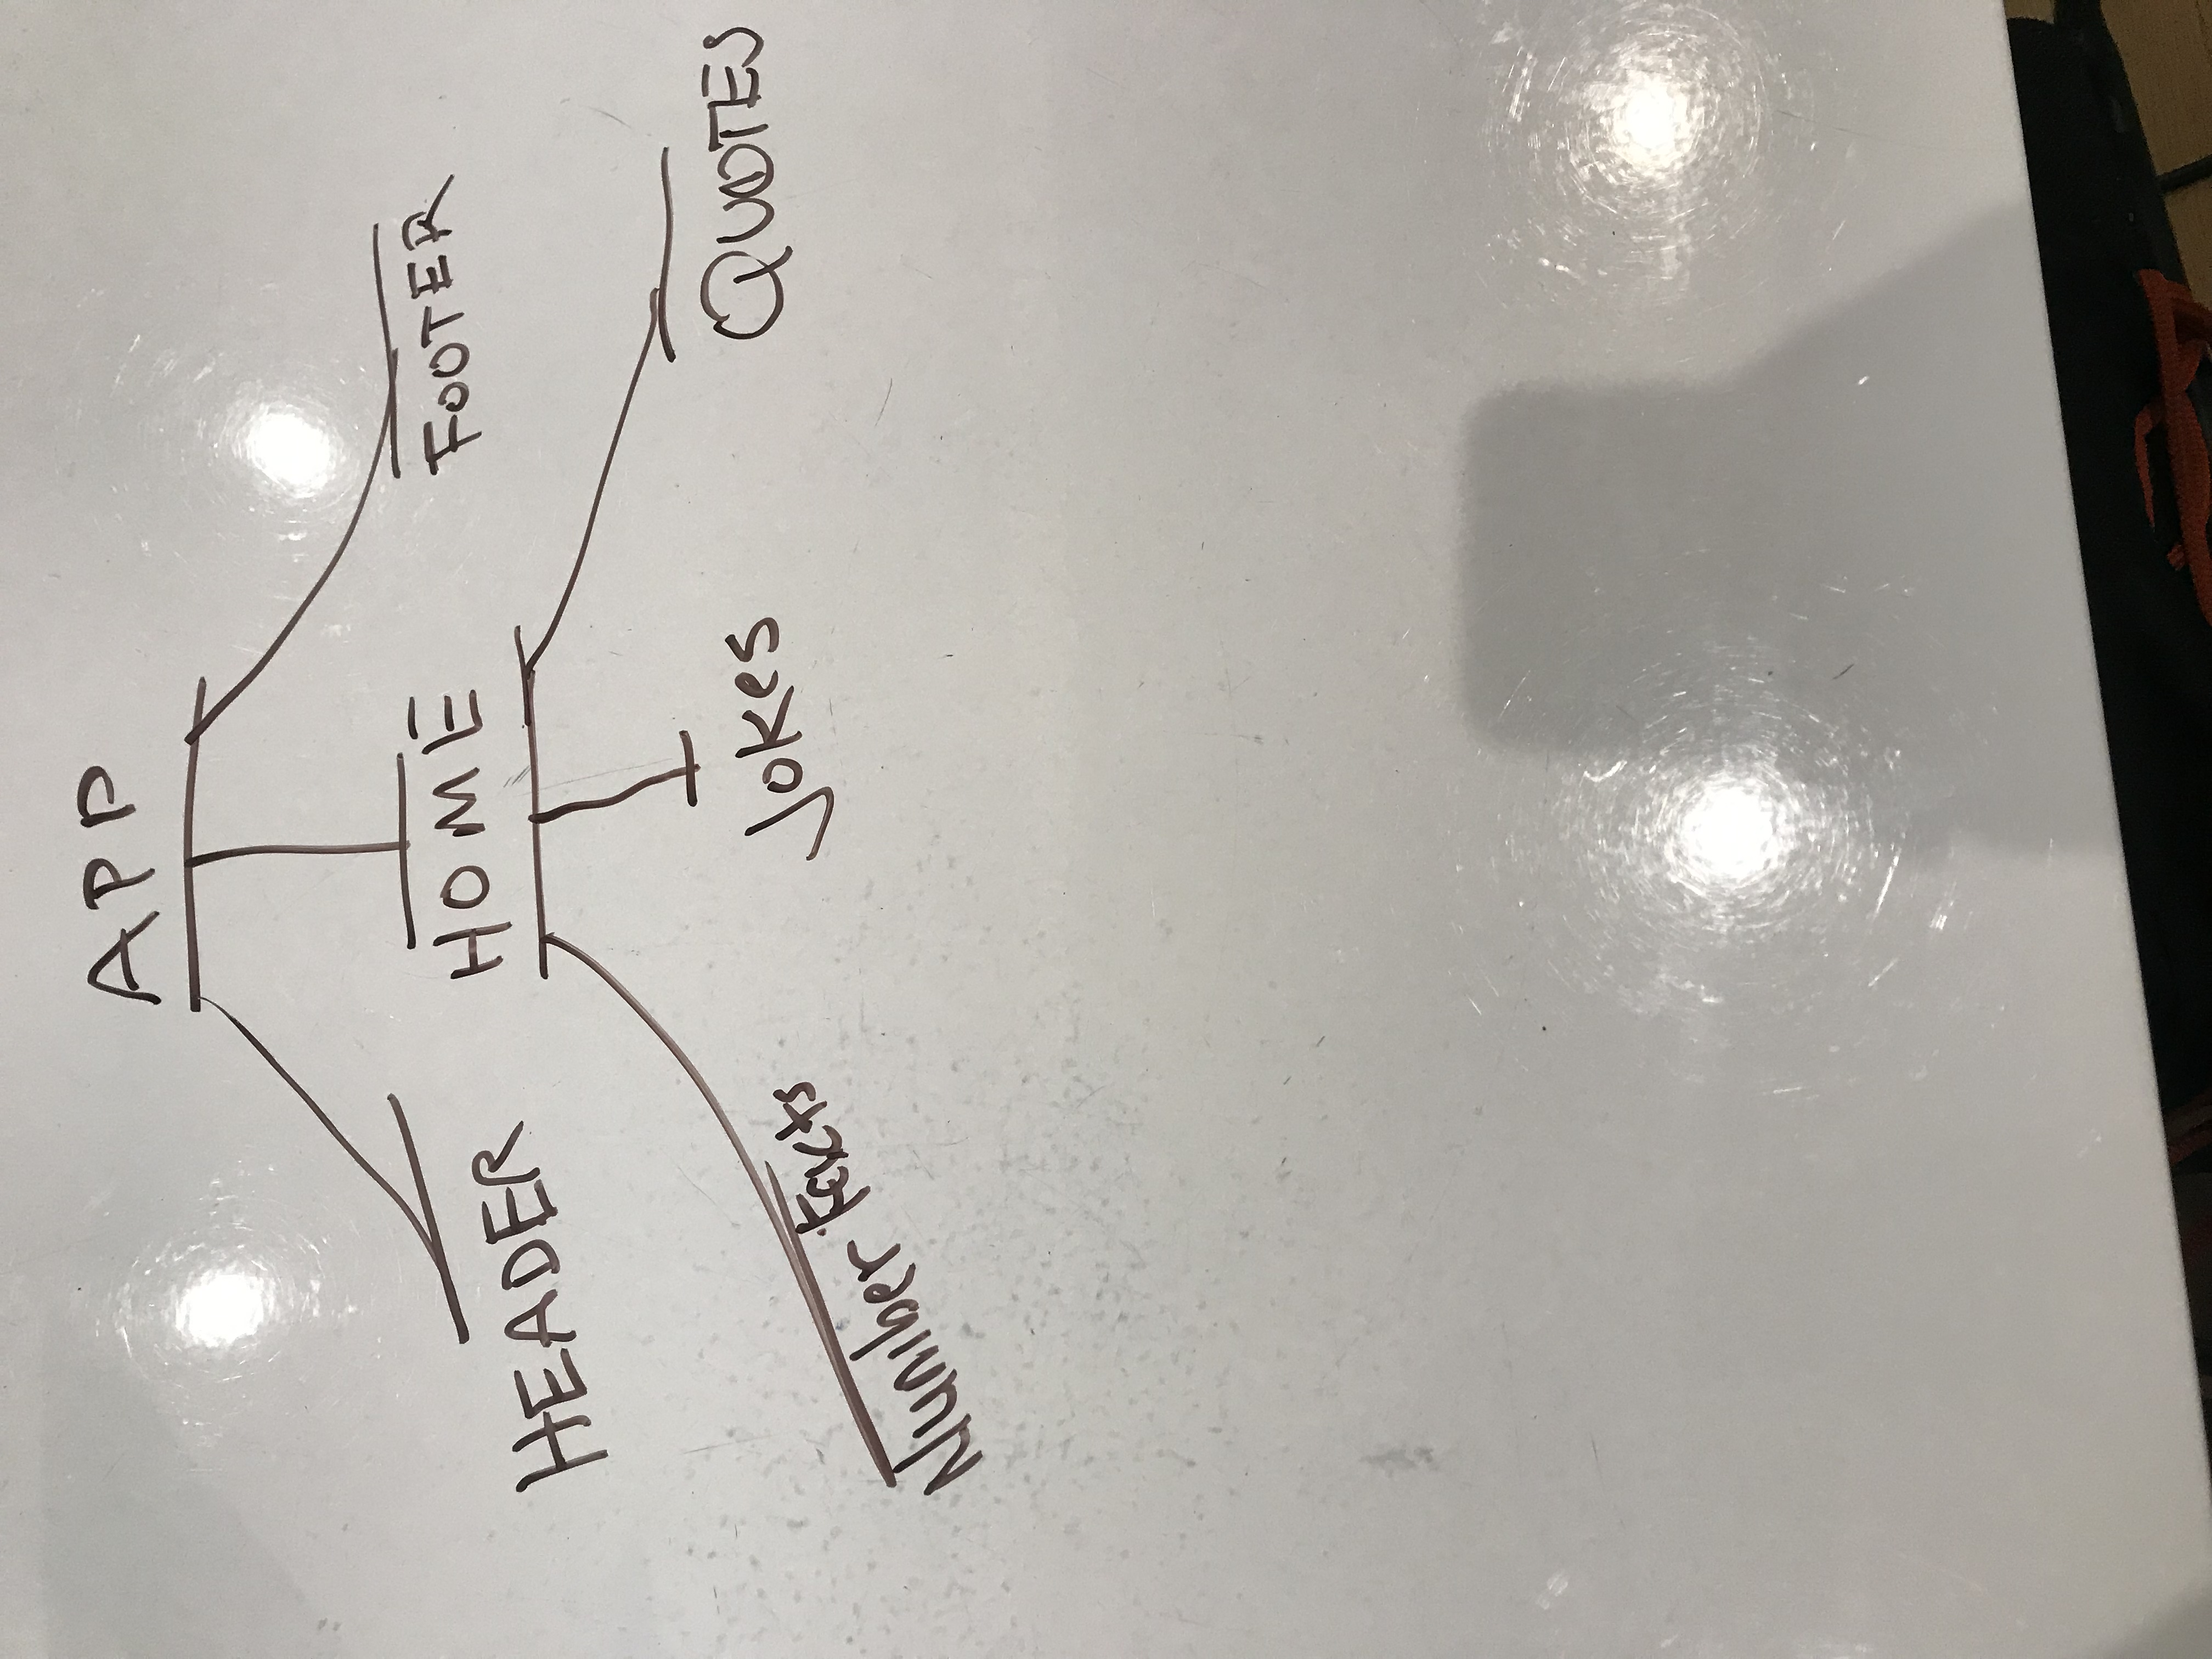 APP
HEADER
HOME
FOOTER
Number Facts
Jokes
QUOTES